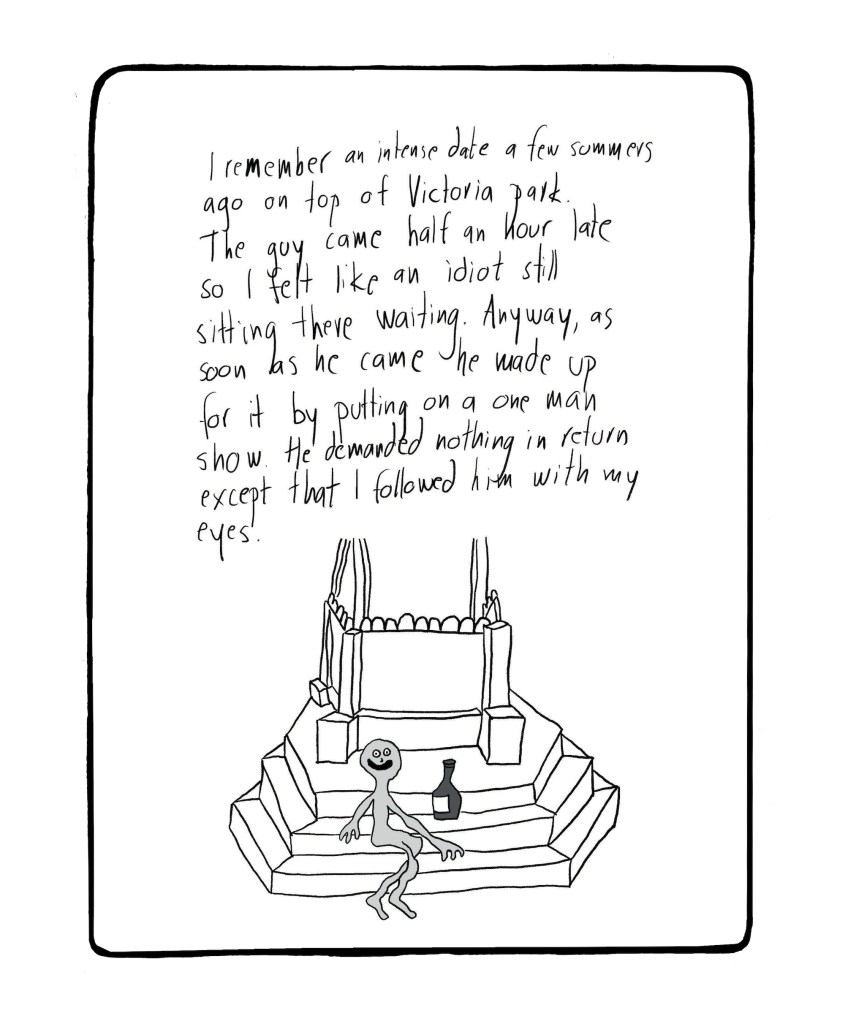 I remember an intense date a few summers
ago on top of Victoria park.
The guy came half an hour late
so I felt like an idiot still
sitting there waiting. Anyway, as
soon as he came he made up
for it by putting on a one man
show. He demanded nothing in return
except that I followed him with my
eyes.